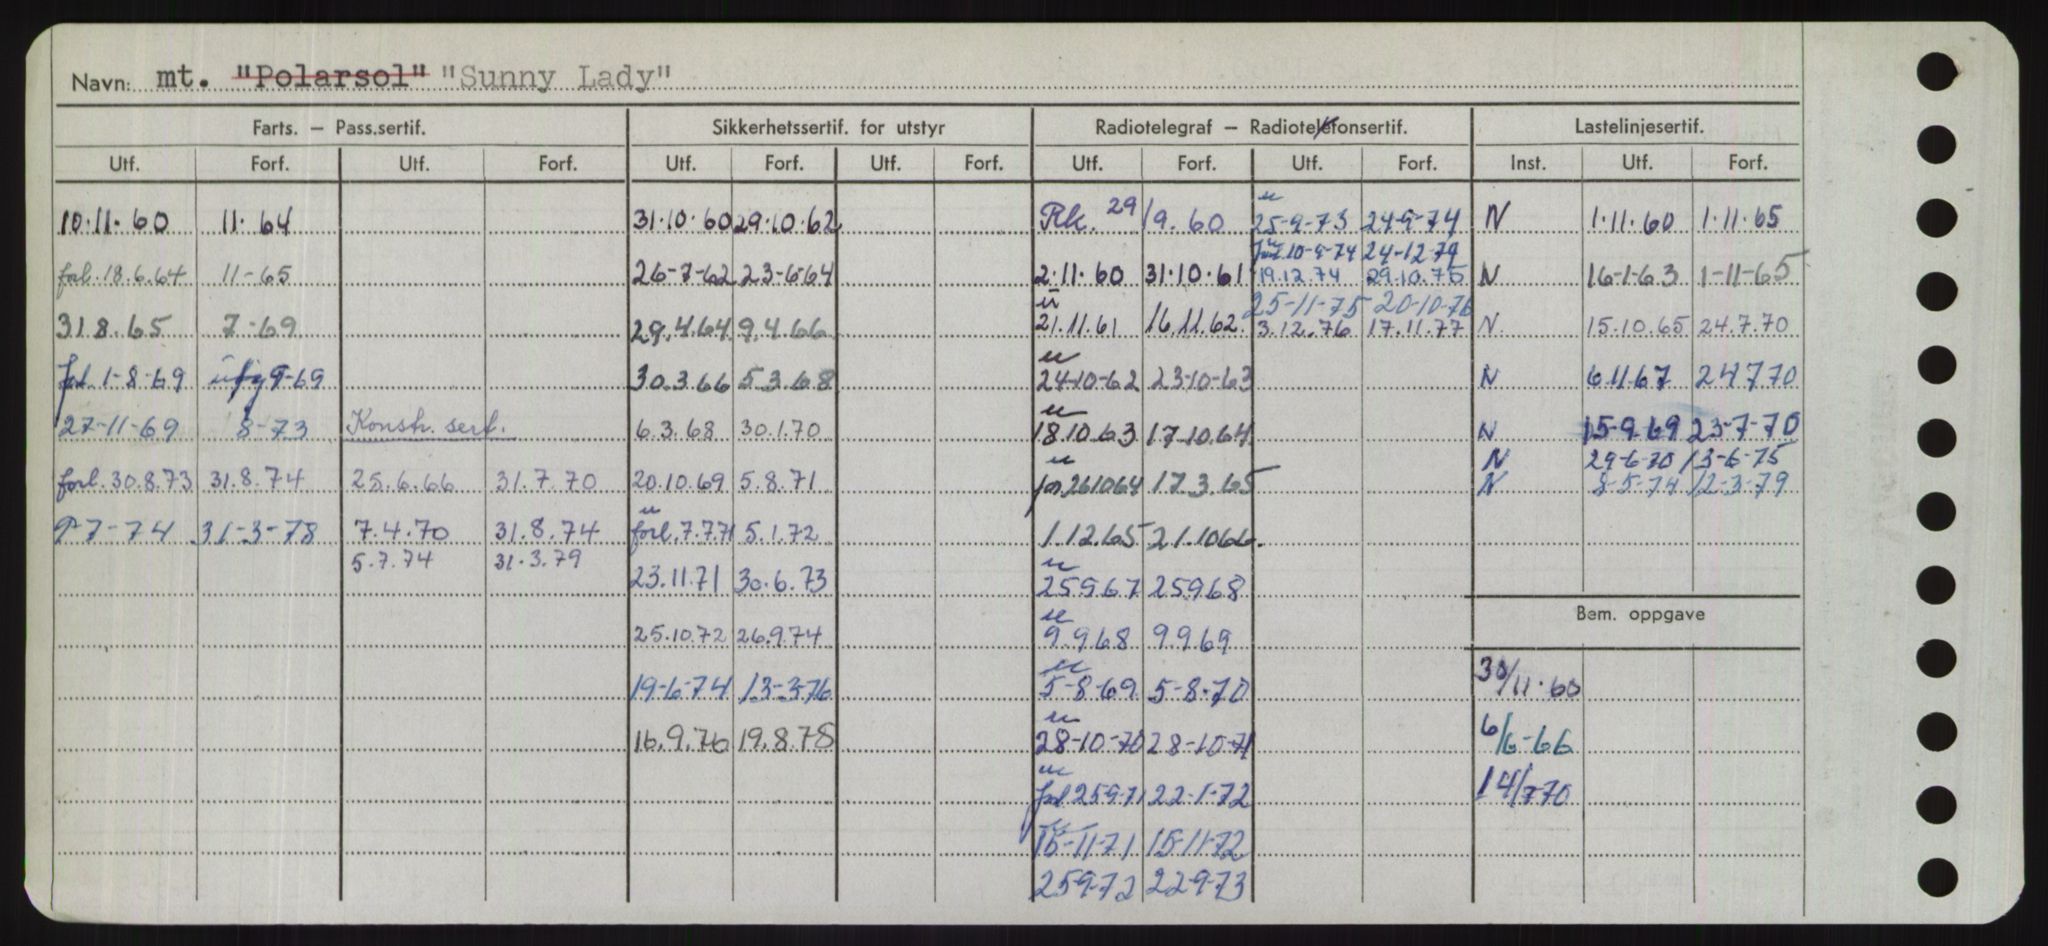 Navn: mt. "Polarsol" "Sunny Lady"
Farts. – Pass.sertif. Sikkerhetssertif. for utstyr Radiotelegraf – Radiotelefonsertif. Lastelinjesertif.
Utf. Forf. Utf. Forf. Utf. Forf. Utf. Forf. Utf. Forf. Utf. Forf. Inst. Utf. Forf.
10.11.60 11.64 31.10.60 29.10.62 Rk. 29/9.60 u 25-9-73 24-9-74 N 1.11.60 1.11.65
10-9-74 24-12-74
forl. 18.6.64 11-65 26-7-62 23-6-64 2.11.60 31.10.61 19.12.74 29.10.75 N 16-1-63 1-11-65
25-11-75 20-10-76
31.8.65 7-69 29.4.64 9.4.66 u 21.11.61 16.11.62 3.12.76 17.11.77 N 15.10.65 24.7.70
forl. 1-8-69 9-69 30.3.66 5.3.68 u 24-10-62 23-10-63 N 6.11.67 24.7.70
27-11-69 8-73 Konstr. sert. 6.3.68 30.1.70 u 18.10.63 17.10.64 N 15-9-69 23-7-70
N 29-6-70 13-6-75
forl. 30.8.73 31.8.74 25.6.66 31.7.70 20.10.69 5.8.71 u 261064 17.3.65 N 8-5-74 12-3-79
9-7-74 31-3-78 7.4.70 31.8.74 u forl. 7.7.71 5.1.72 1.12.65 21.1066
5.7.74 31.3.79
23.11.71 30.6.73 u 25967 25968
Bem. oppgave
25.10.72 26.9.74 u 9.968 9.969
19-6-74 13-3-76 u 5-8-69 5-8-70 30/11.60
16.9.76 19.8.78 u 28-10-70 28-10-71 6/6-66
u forl 259-71 22-1-72 14/770
u 15-11-71 15-11-72
259-72 229-73